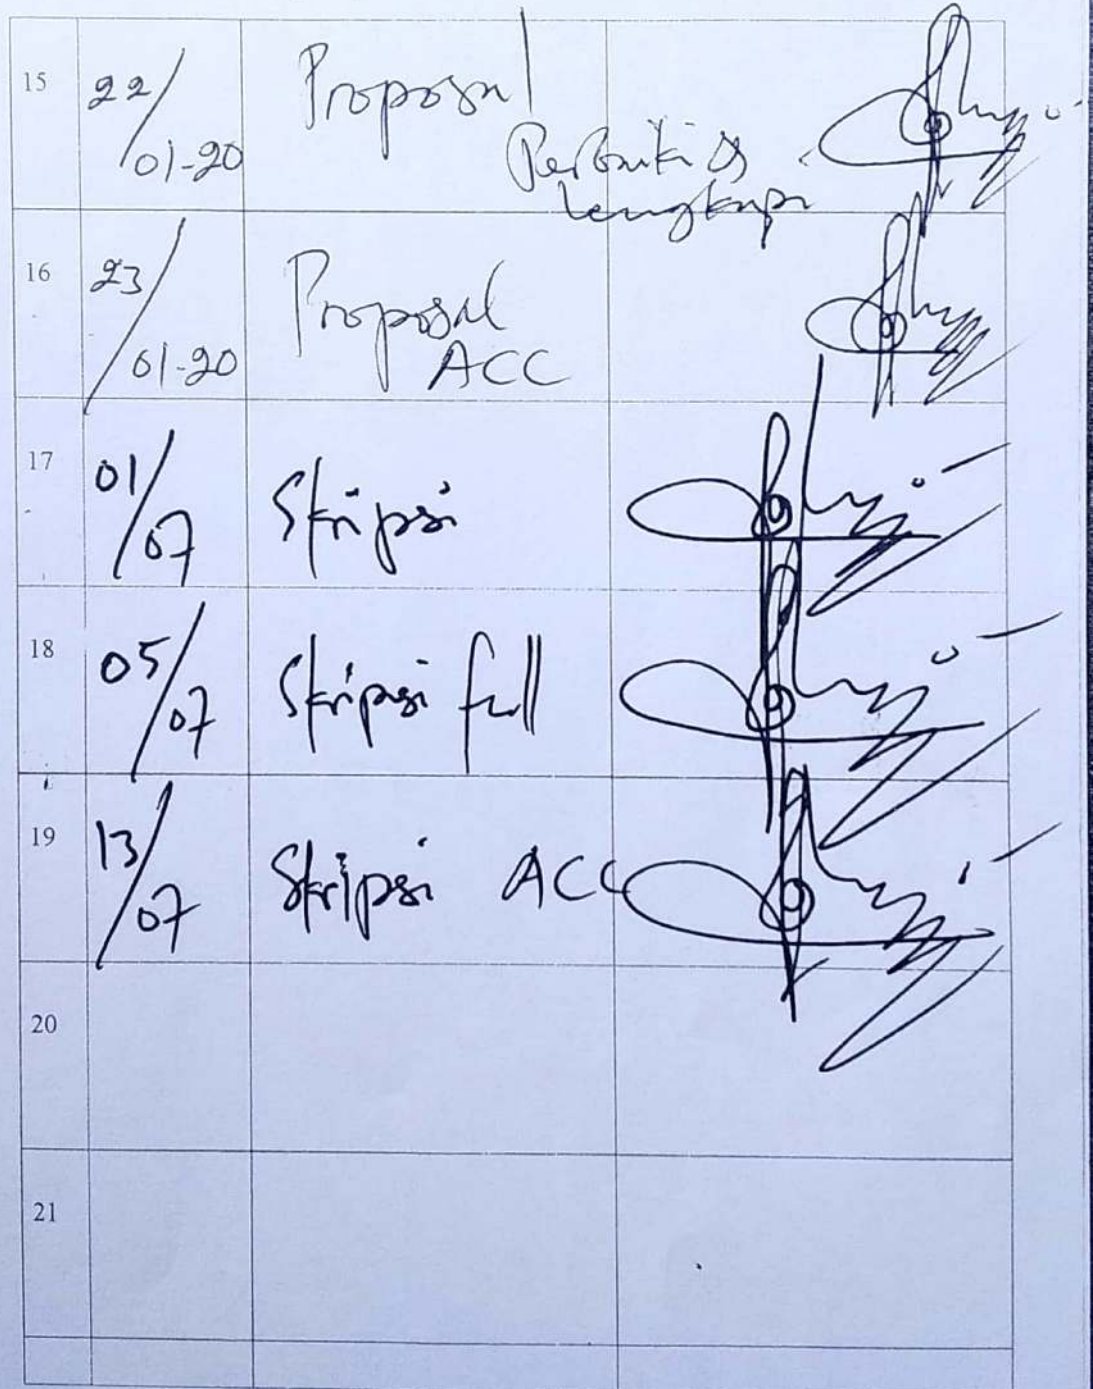 15 22/01-20 Proposal
Perbaiki &
lengkapi
16 23/01-20 Proposal
ACC
17 01/07 Skripsi
18 05/07 Skripsi full
19 13/07 Skripsi ACC
20
21